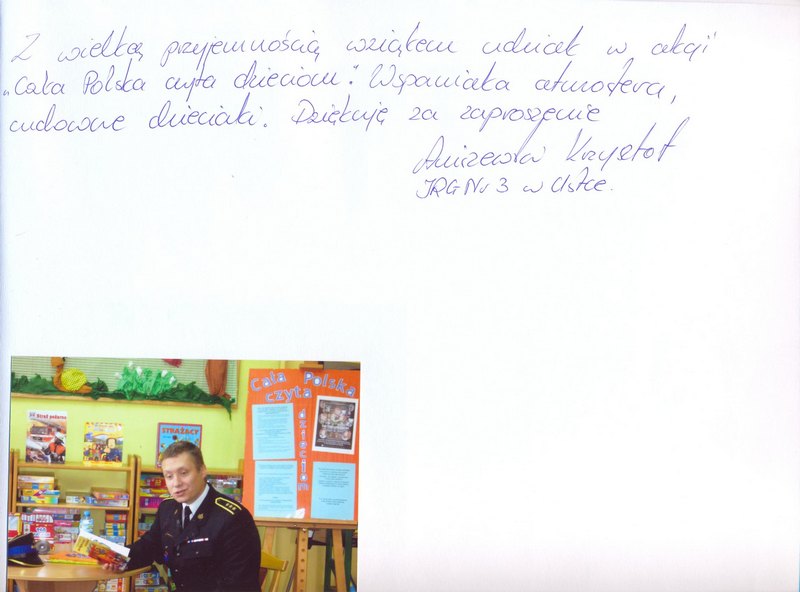 Z wielką przyjemnością wziąłem udział w akcji
„Cała Polska czyta dzieciom". Wspaniała atmosfera,
cudowne dzieciaki. Dziękuję za zaproszenie
Krzysztof
JRG Nr 3 w Ustce.
Cała Polska
czyta
dzieciom
Straż pożarna
STRAŻACY